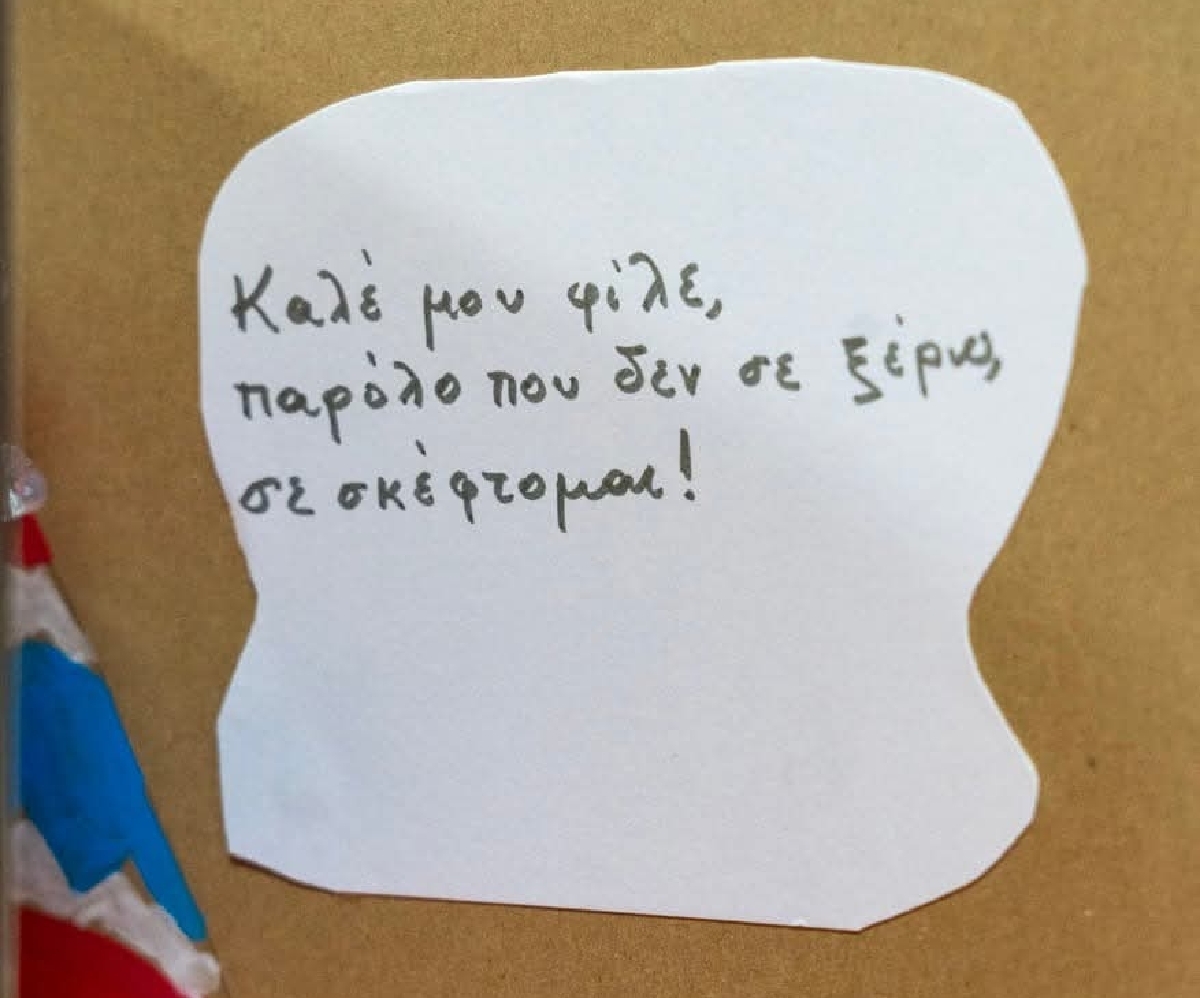 Καλέ μου φίλε,
παρόλο που δεν σε ξέρω,
σε σκέφτομαι!